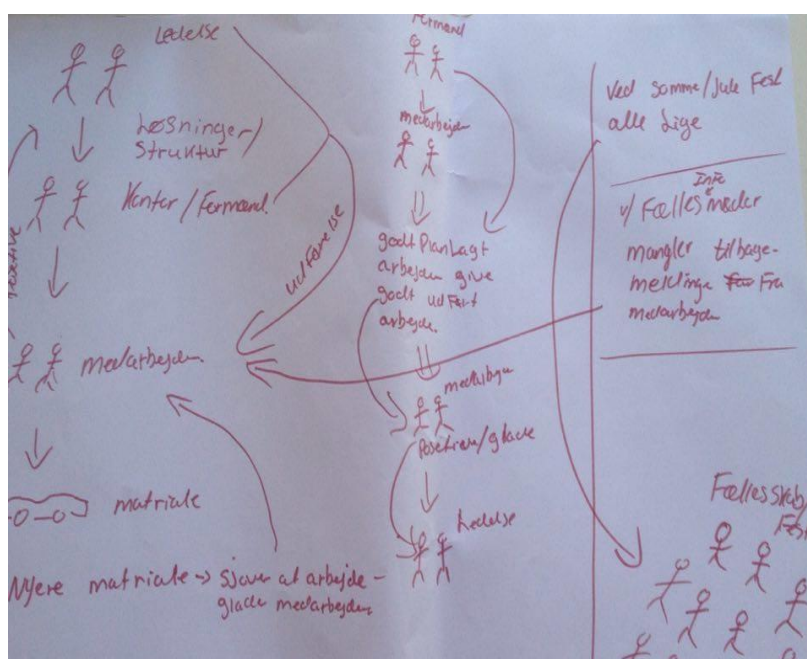 Ledelse
Løsninger/
Struktur
Kontor/Formand
udførelse
medarbejder
matriale
Nyere matriale → sjover at arbejde -
glade medarbejder
Formand
medarbejder
godt Planlagt
arbejden give
godt udført
arbejde.
Positive/glade
Ledelse
Ved somme/jule Fest
alle Lige
Info
v/ Fælles møder
mangler tilbage-
meldinge Fra
medarbejder
Fællesskab/